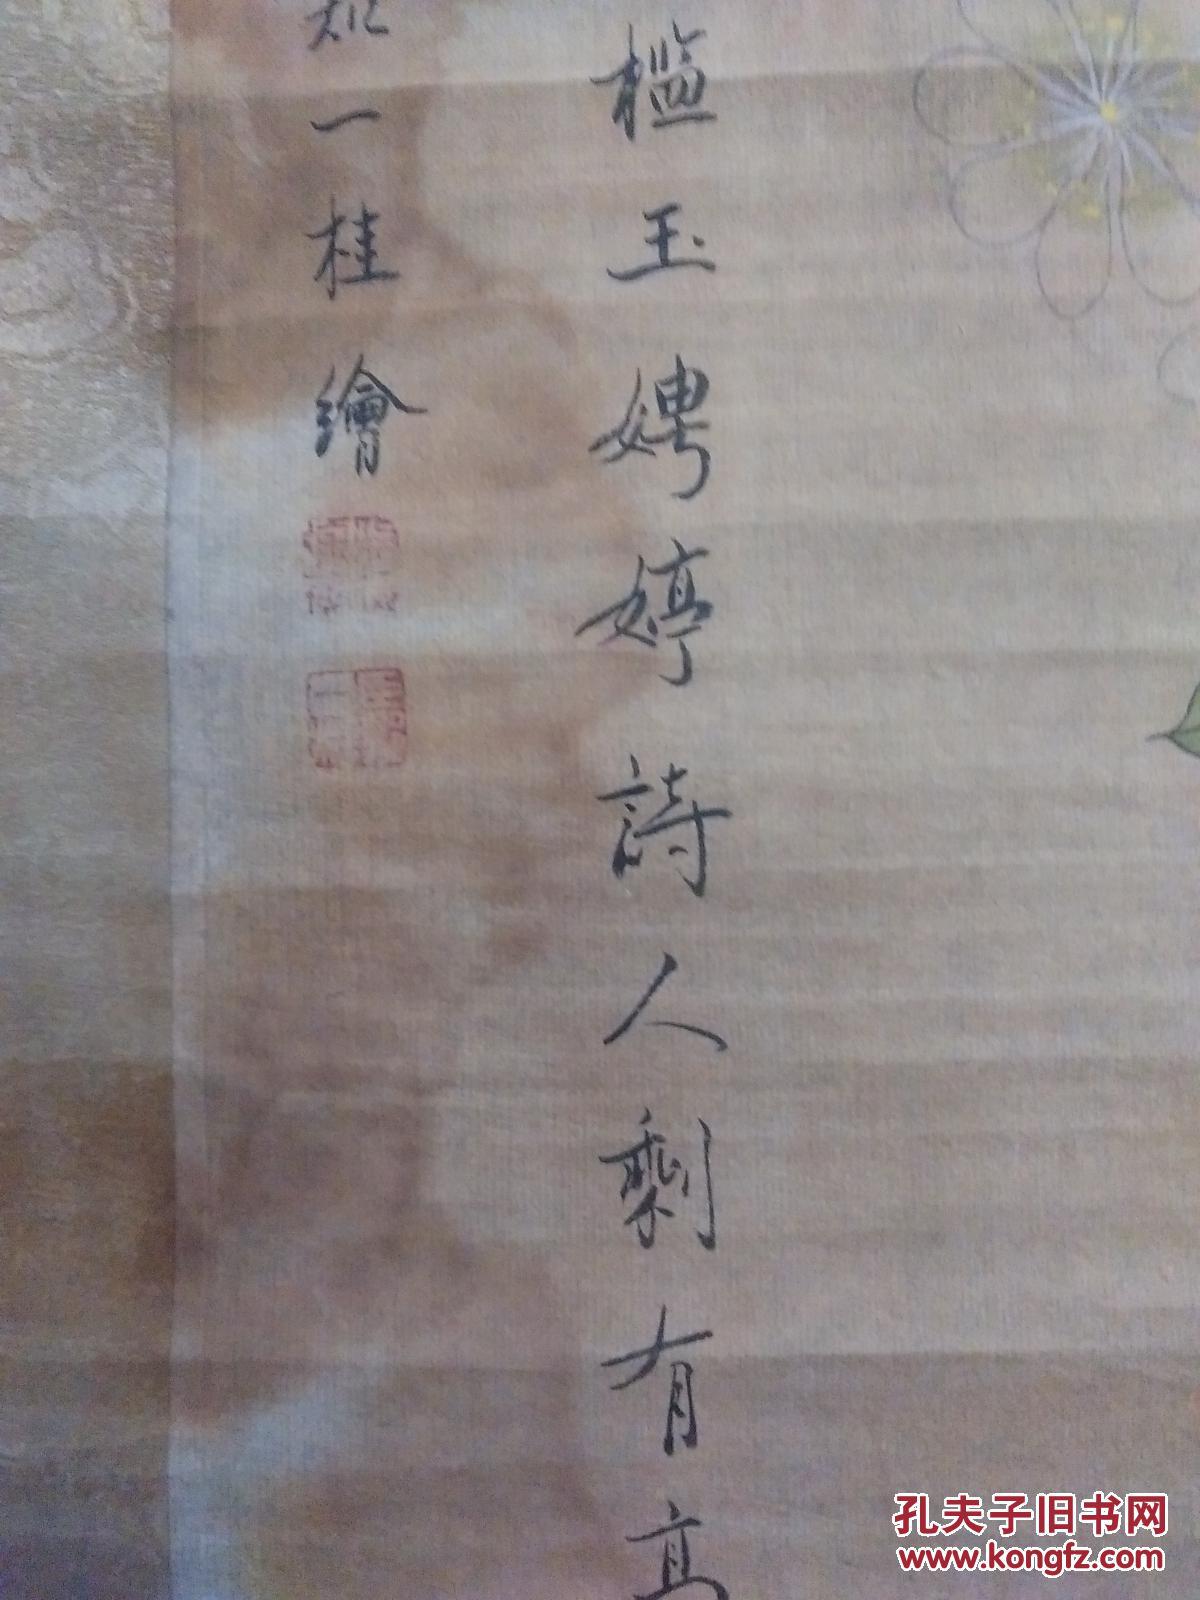 檻玉娉婷詩人剩有高
一桂繪
孔夫子旧书网
www.kongfz.com